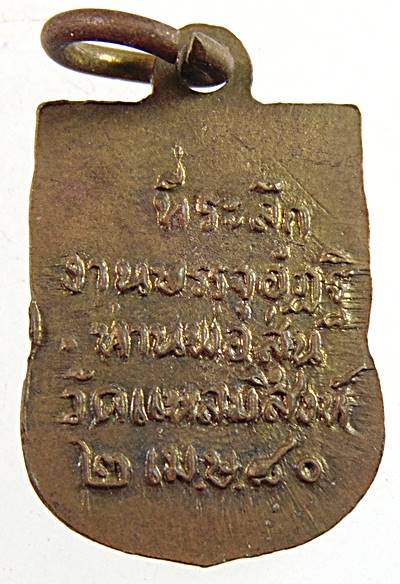 ที่ระลึก
งานบรรจุอัฏฐิ
ท่านพ่อลุ่น
วัดแหลมสิงห์
๒ เม.ษ.๔๐